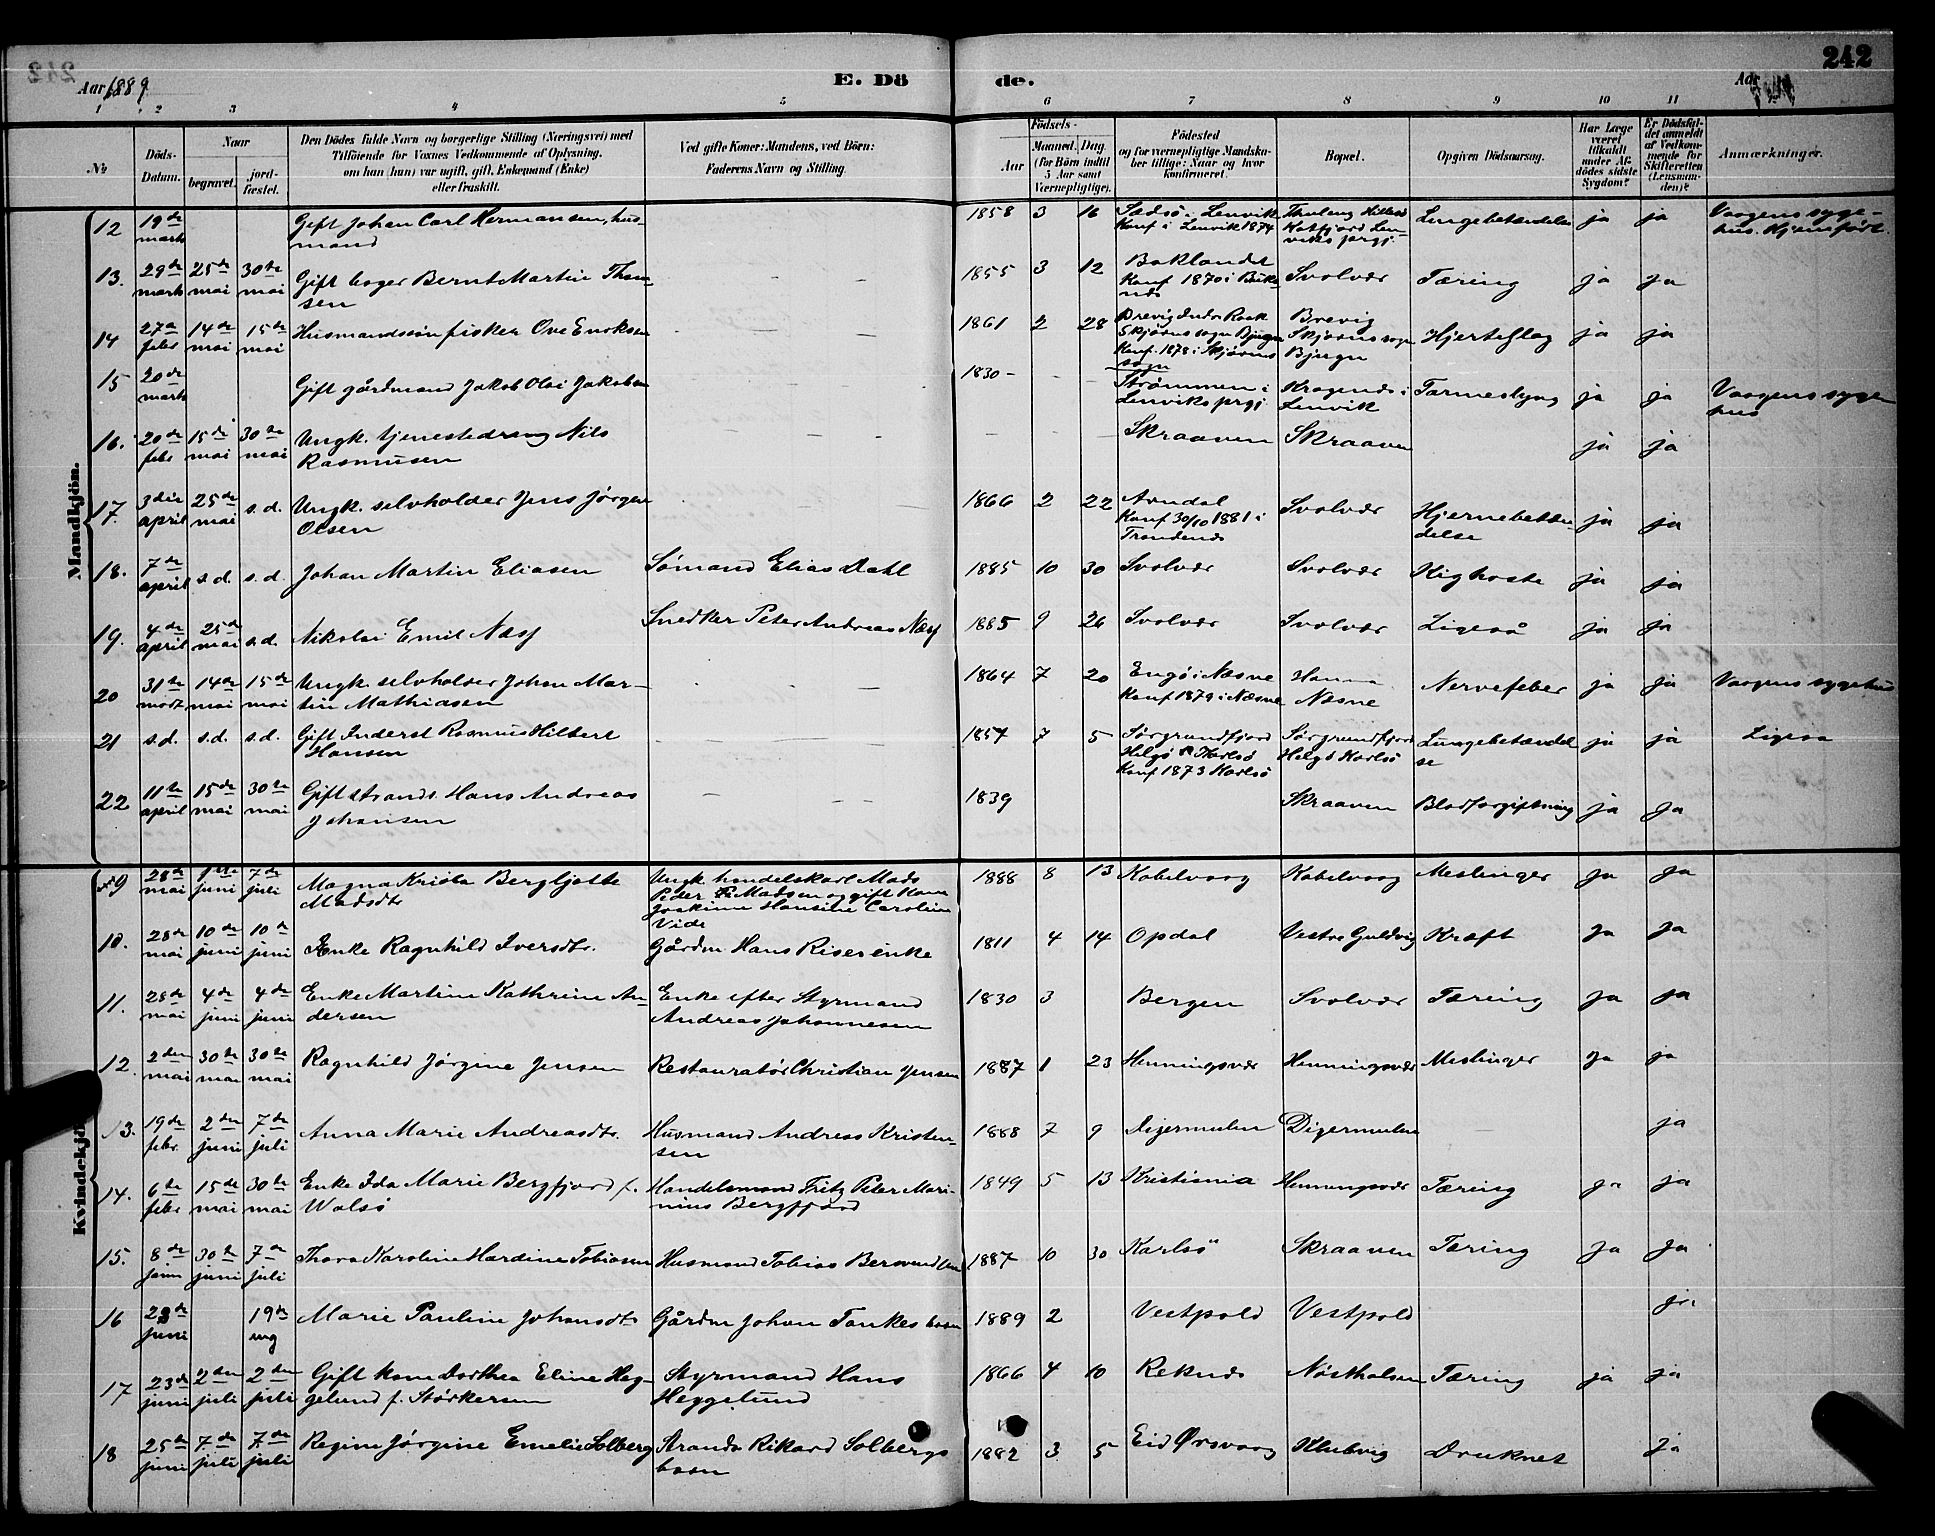 242
Aar 1889.
E. Dö
de.
Aar
1 2 3 4 5 6 7 8 9 10 11
No
Döds-Datum.
Naar
begravet.
jord-fæstet.
Den Dödes fulde Navn og borgerlige Stilling (Næringsvei) med
Tilföiende for Voxnes Vedkommende af Oplysning,
om han (hun) var ugift, gift, Enkemand (Enke)
eller fraskilt.
Ved gifte Koner: Mandens, ved Börn:
Faderens Navn og Stilling.
Födsels-
Aar
Maaned. Dag.
(for Börn indtil
5 Aar samt
Værnepligtige).
Födested
og for værnepligtige Mandska-
ber tillige: Naar og hvor
konfirmeret.
Bopæl.
Opgiven Dödsaarsag.
Har Læge
været
tilkaldt
under Af-
dödes sidste
Sygdom?
Er Dödsfal-
det anmeldt
af Vedkom-
mende for
Skifteretten
(Lensman-
den)?
Anmærkninger.
Mandkjön.
12 19de marts Gift Johan Carl Hermansen, husmand 1858 3 16 Konf i Lenvik 1874 Lungebetændelse ja ja Vaagens sygehus. Hjemført.
13. 29de marts 25de mai 30te mai Gift boger Bernt Martin Thomsen 1855 3 12 Baklandet Konf 1870 i Svolvær Tæring ja ja
14 27de febr 14de mai 15de mai Husmandssøn fisker Ove Enoksen 1861 2 28 Skjørns sogn Bjugn Konf. 1878 i Skjørns sogn Brevig Skjørns sogn Bjugn Hjerteslag ja ja
15 20de marts Gift gårdmand Jakob Olai Jakobsen 1830 Strømmen i Lenviks prgj. Krogenes i Lenvik Tarmeslyng ja ja Vaagens sygehus
16. 20de febr 15de mai 30te mai Ungk. tjenestedreng Nils Rasmusen Skraaven Skraaven ja ja
17. 3die april 25de mai s.d. Ungk. selvholder Jens Jørgen Olsen 1866 2 22 Konf 30/10 1881 i Trondenes Svolvær Hjernebetændelse ja ja
18. 7de april s.d. s.d. Johan Martin Eliasen Sømand Elias Dahl 1885 10 30 Svolvær Svolvær Kighoste ja ja
19. 4de april 25de mai s.d. Nikolai Emil Næss Snedker Peter Andreas Næss 1885 9 26 Svolvær Svolvær Ligeså ja ja
20 31te marz 14de mai 15de mai Ungk. selvholder Johan Martin Mathiasen 1864 7 20 Engø i Næsne Konf 1879 i Næsne Næsne Nervefeber ja ja Vaagens sygehus
21 s.d. s.d. s.d. Gift Inderst Rasmus Hilbert Hansen 1857 7 5 Sørgrundfjord Helgø Karlsø Konf 1873 Karlsø Sørgrundfjord Helgø Karlsø Lungebetændelse ja ja Ligesaa
22 11te april 15de mai 30te mai Gift strands. Hans Andreas Johansen 1839 Skraaven Blodforgiftning ja ja
Kvindekjön
9 28de mai juni 7de juli Magna Krista Bergljotte Madsdtr Ungk handelskarl Mads Peder Madsen og gift Kone Joakime Hansine Caroline Vide 1888 8 13 Kabelvaag Kabelvaag Meslinger ja ja
10. 28de mai 10de juni 10de juni Enke Ragnhild Iversdtr. Gårdm Hans Risers enke 1811 4 14 Opdal Vestre Guldvig Kræft ja ja
11. 28de mai 4de juni 4de juni Enke Martine Kathrine Andersen Enke efter Styrmand Andreas Johannesen 1830 3 Bergen Svolvær Tæring ja ja
12. 2den mai 30te mai 30te mai Ragnhild Jørgine Jensen Restauratør Christian Jensen 1887 1 23 Henningsvær Henningsvær Meslinger ja ja
13. 19de febr. 2den juni 7de juli Anna Marie Andreasdtr. Husmand Andreas Kristensen 1888 7 9 Digermulen Digermulen ja
14. 6te febr 15de mai 30te mai Enke Ida Marie Bergfjord f. Walsø Handelsmand Fritz Peter Marinius Bergfjord 1849 5 13 Kristiania Henningsvær Tæring ja ja
15. 8de juni 30te juni 7de juli Thora Karoline Hardine Tobiasen Husmand Tobias Bersvendsen 1887 10 30 Karlsö Skraaven Tæring ja ja
16 juni 19de aug Marie Pauline Johansdtr Gårdm Johan Tankes barn 1889 2 Vestpold Vestpold ja
17 23de juni 2den juli 2den juli Gift kone Dorthea Eline Heggelund f. Størkersen Styrmand Hans Heggelund 1866 4 10 Reknes Nøstholmen Tæring ja ja
18 25te juni 7de juli 7de juli Regine Jørgine Emelie Solberg Strands Rikard Solbergs barn 1882 3 5 Eid Ørsvaag Klubvig Druknet ja